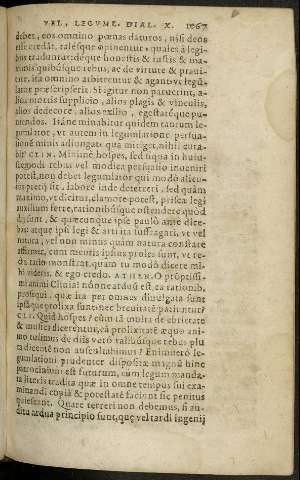 VEL, LEGVM. DIAL. X. 1067
debet, eos omnino pœnas daturos, nisi deos
esse credāt, talésque opinentur, quales à legi-
bus traduntur: déque honestis & iustis & ma-
ximis quibúsque rebus, ac de virtute & praui-
tate, ita omnino arbitrentur & agant vt legū-
lator præscripserit. Si igitur non paruerint, a-
lios mortis supplicio, alios plagis & vinculis,
alios dedecore, alios exilio, egestatéque pu-
niendos. Itáne minabitur quidem tantum le-
gumlator, vt autem in legumlatione persua-
sionē minis adiungat qua mitiget, nihil cura-
bit? CLIN. Minimè hospes, sed siqua in huiu-
scemodi rebus vel modica persuasio inueniri
potest, non debet legumlator qui modò alicu-
ius pretij sit, labore inde deterreri, sed quàm
maximo, vt dicitur, clamore potest, priscæ legi
auxilium ferre, rationibúsque ostendere quòd
dij sunt, & quæcunque ipse paulò antè dice-
bas: atque ipsi legi & arti ita suffragari, vt vel
natura, vel non minus quàm natura constare
affirmet, cum mentis ipsius proles sunt, vt re-
cta ratio monstrat, quam tu modò dicere mi-
hi videris, & ego credo. ATHEN. O promptissi-
mi animi Clinia! nónne arduū est, ea rationib.
prosequi, quæ ita per omnes diuulgata sunt
ipsáque prolixa sunt: nec breuitate patiuntur?
CLI. Quid hospes? cùm tā multa de ebrietate
& musica dicerentur, eā prolixitatē æquo ani-
mo tulimus: de diis verò talibúsque rebus plu
ra dicentē non auscultabimus? Enimuerò le-
gumlationi prudenter dispositæ magnū hinc
patrocinium est futurum, cùm legum manda-
ta literis tradita quæ in omne tempus sui exa-
minandi copiā & potestatē faciant sic penitus
quiescant. Quare terreri non debemus, si au-
ditu ardua principio sunt, quę vel tardi ingenij